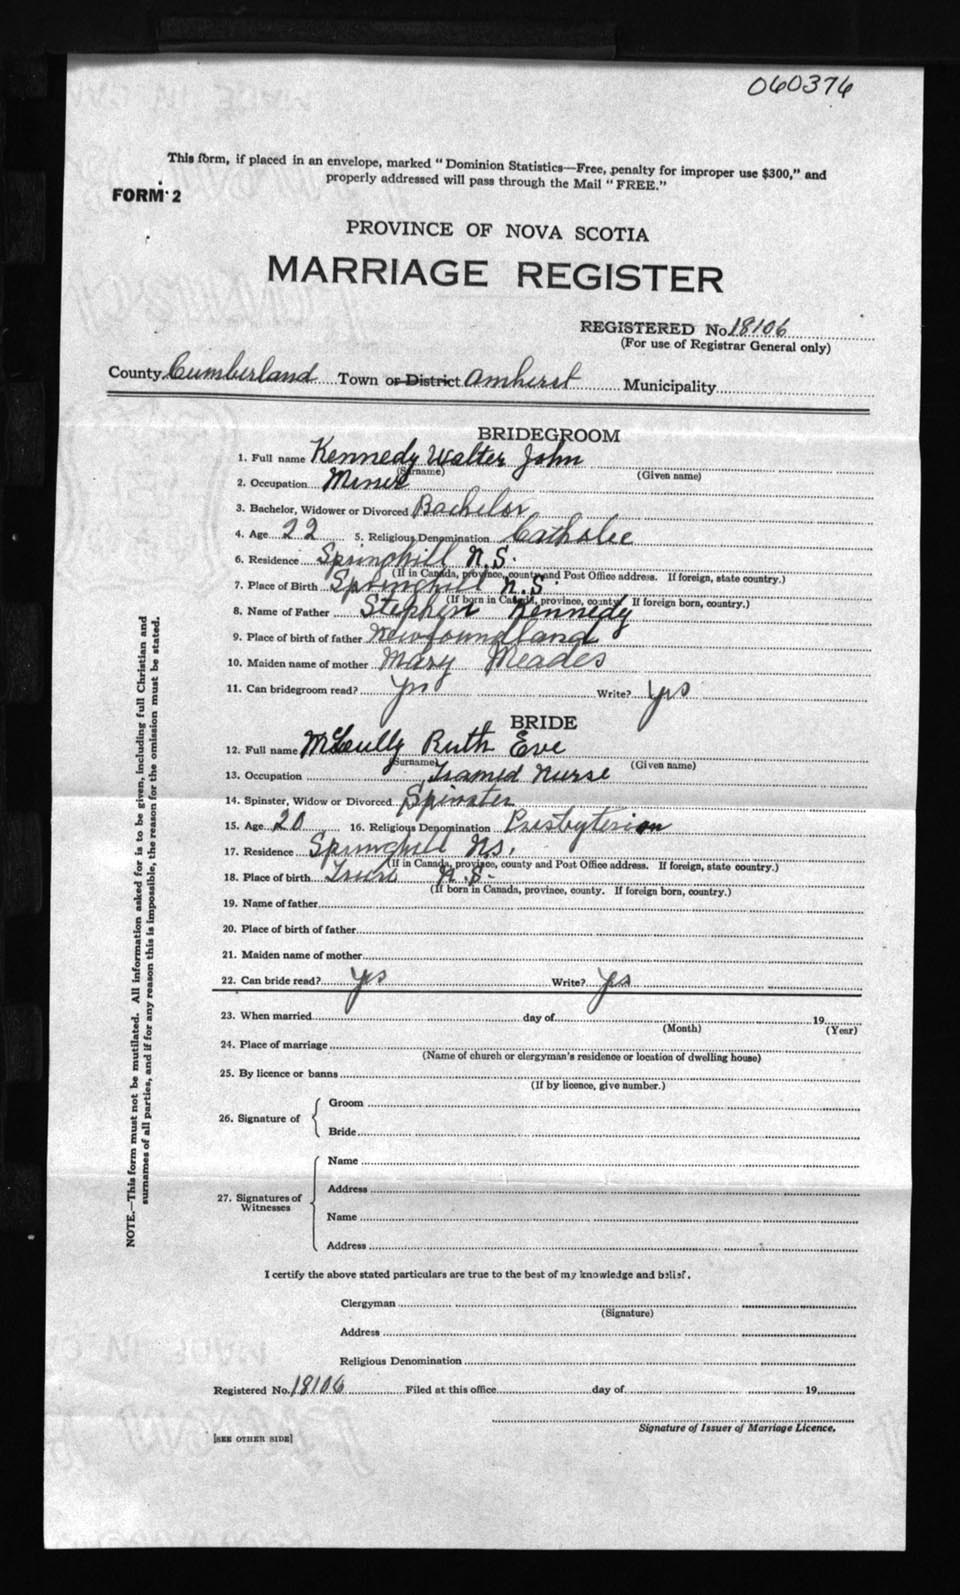 060376
This form, if placed in an envelope, marked "Dominion Statistics—Free, penalty for improper use $300," and
properly addressed will pass through the Mail "FREE."
FORM 2
PROVINCE OF NOVA SCOTIA
MARRIAGE REGISTER
REGISTERED No. 18106
(For use of Registrar General only)
County Cumberland Town or District Amherst Municipality
BRIDEGROOM
1. Full name Kennedy Walter John
(Surname) (Given name)
2. Occupation Miner
3. Bachelor, Widower or Divorced Bachelor
4. Age 22 5. Religious Denomination Catholic
6. Residence Springhill N.S.
(If in Canada, province, county and Post Office address. If foreign, state country.)
7. Place of Birth Springhill N.S.
(If born in Canada, province, county. If foreign born, country.)
8. Name of Father Stephen Kennedy
9. Place of birth of father Newfoundland
10. Maiden name of mother Mary Meades
11. Can bridegroom read? Yes Write? Yes
BRIDE
12. Full name McCully Ruth Eve
(Surname) (Given name)
13. Occupation Trained Nurse
14. Spinster, Widow or Divorced Spinster
15. Age 20 16. Religious Denomination Presbyterian
17. Residence Springhill N.S.
(If in Canada, province, county and Post Office address. If foreign, state country.)
18. Place of birth Truro N.S.
(If born in Canada, province, county. If foreign born, country.)
19. Name of father
20. Place of birth of father
21. Maiden name of mother
22. Can bride read? Yes Write? Yes
23. When married day of 19
(Month) (Year)
24. Place of marriage
(Name of church or clergyman's residence or location of dwelling house)
25. By licence or banns
(If by licence, give number.)
26. Signature of
Groom
Bride
27. Signatures of
Witnesses
Name
Address
Name
Address
I certify the above stated particulars are true to the best of my knowledge and belief.
Clergyman
(Signature)
Address
Religious Denomination
Registered No. 18106 Filed at this office day of 19
Signature of Issuer of Marriage Licence.
[SEE OTHER SIDE]
NOTE.—This form must not be mutilated. All information asked for is to be given, including full Christian and
surnames of all parties, and if for any reason this is impossible, the reason for the omission must be stated.